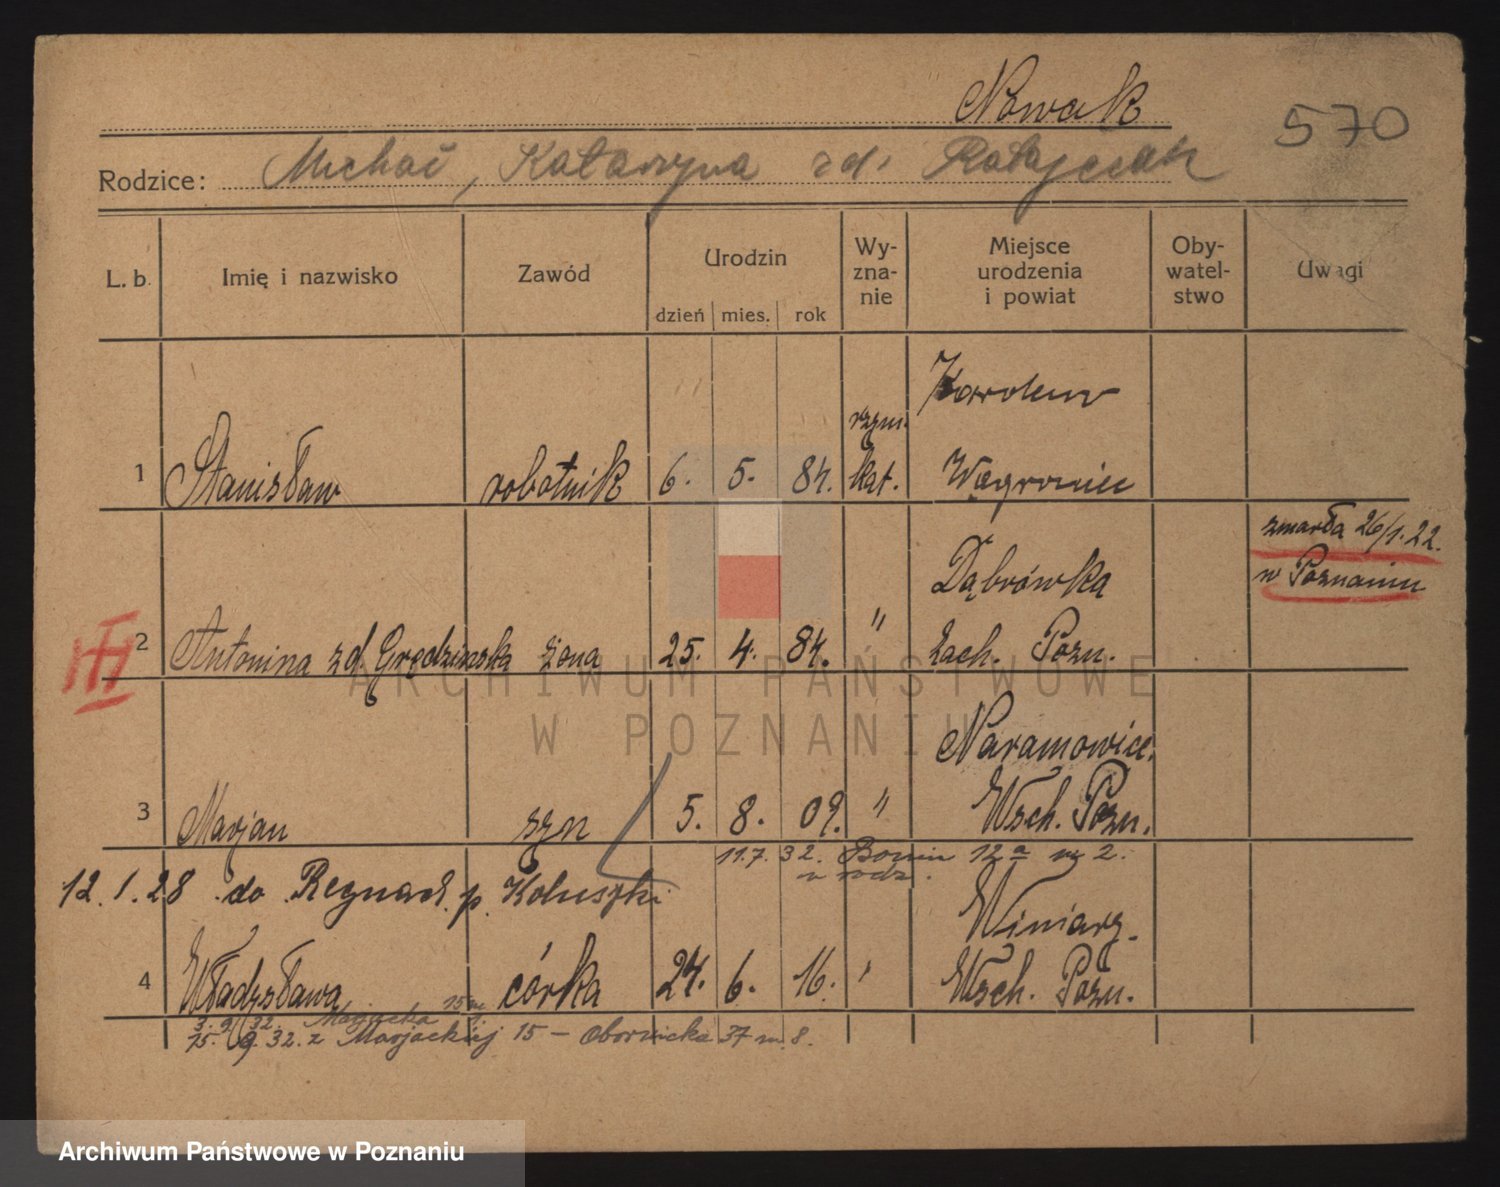 Nowak
570
Rodzice: Michał, Katarzyna zd. Ratajczak
L. b. Imię i nazwisko Zawód Urodzin dzień mies. rok Wy-zna-nie Miejsce urodzenia i powiat Oby-watel-stwo Uwagi
Karolew
1 Stanisław robotnik 6. 5. 84. rzym. kat. Wągrowiec
zmarła 26/1.22.
w Poznaniu
Dąbrówka
III 2 Antonina zd. Grędzinska żona 25. 4. 84. " Zach. Pozn.
Naramowice.
3 Marjan syn 5. 8. 09. " Wsch. Pozn.
11.7.32. Bonin 12a m 2.
u rodz.
12.1.28 do Regnach p. Koluszki
Winiary.
4 Władzsława córka 24. 6. 16. " Wsch. Pozn.
3. 9. 32. Marjacka 15 m
15. 9. 32. z Marjackiej 15 – Obornicka 37 m. 8.
ARCHIWUM PAŃSTWOWE
W POZNANIU
Archiwum Państwowe w Poznaniu